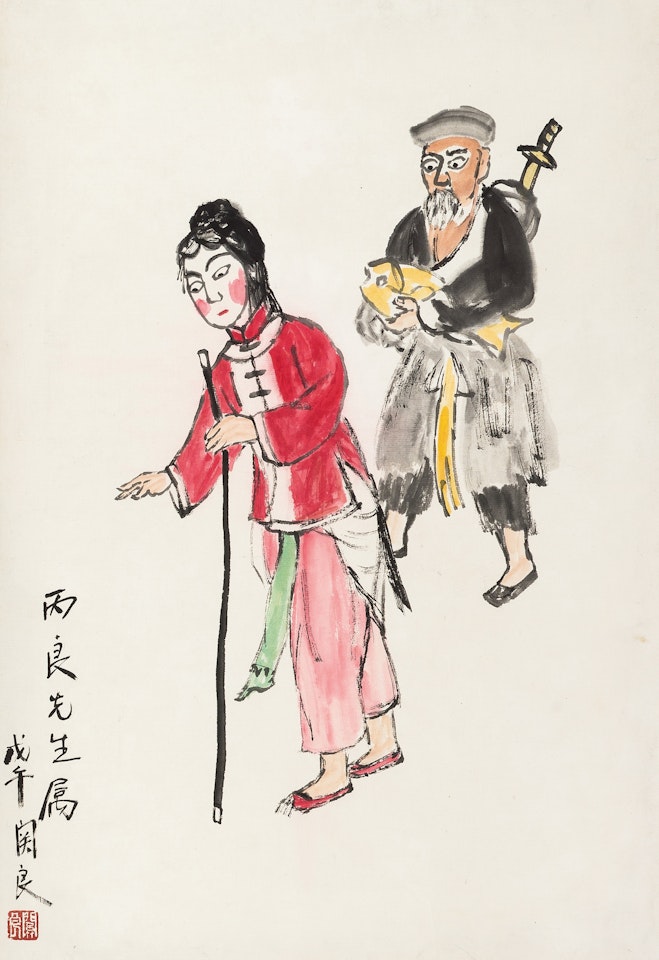 丙良先生属
戊午 関良
関良